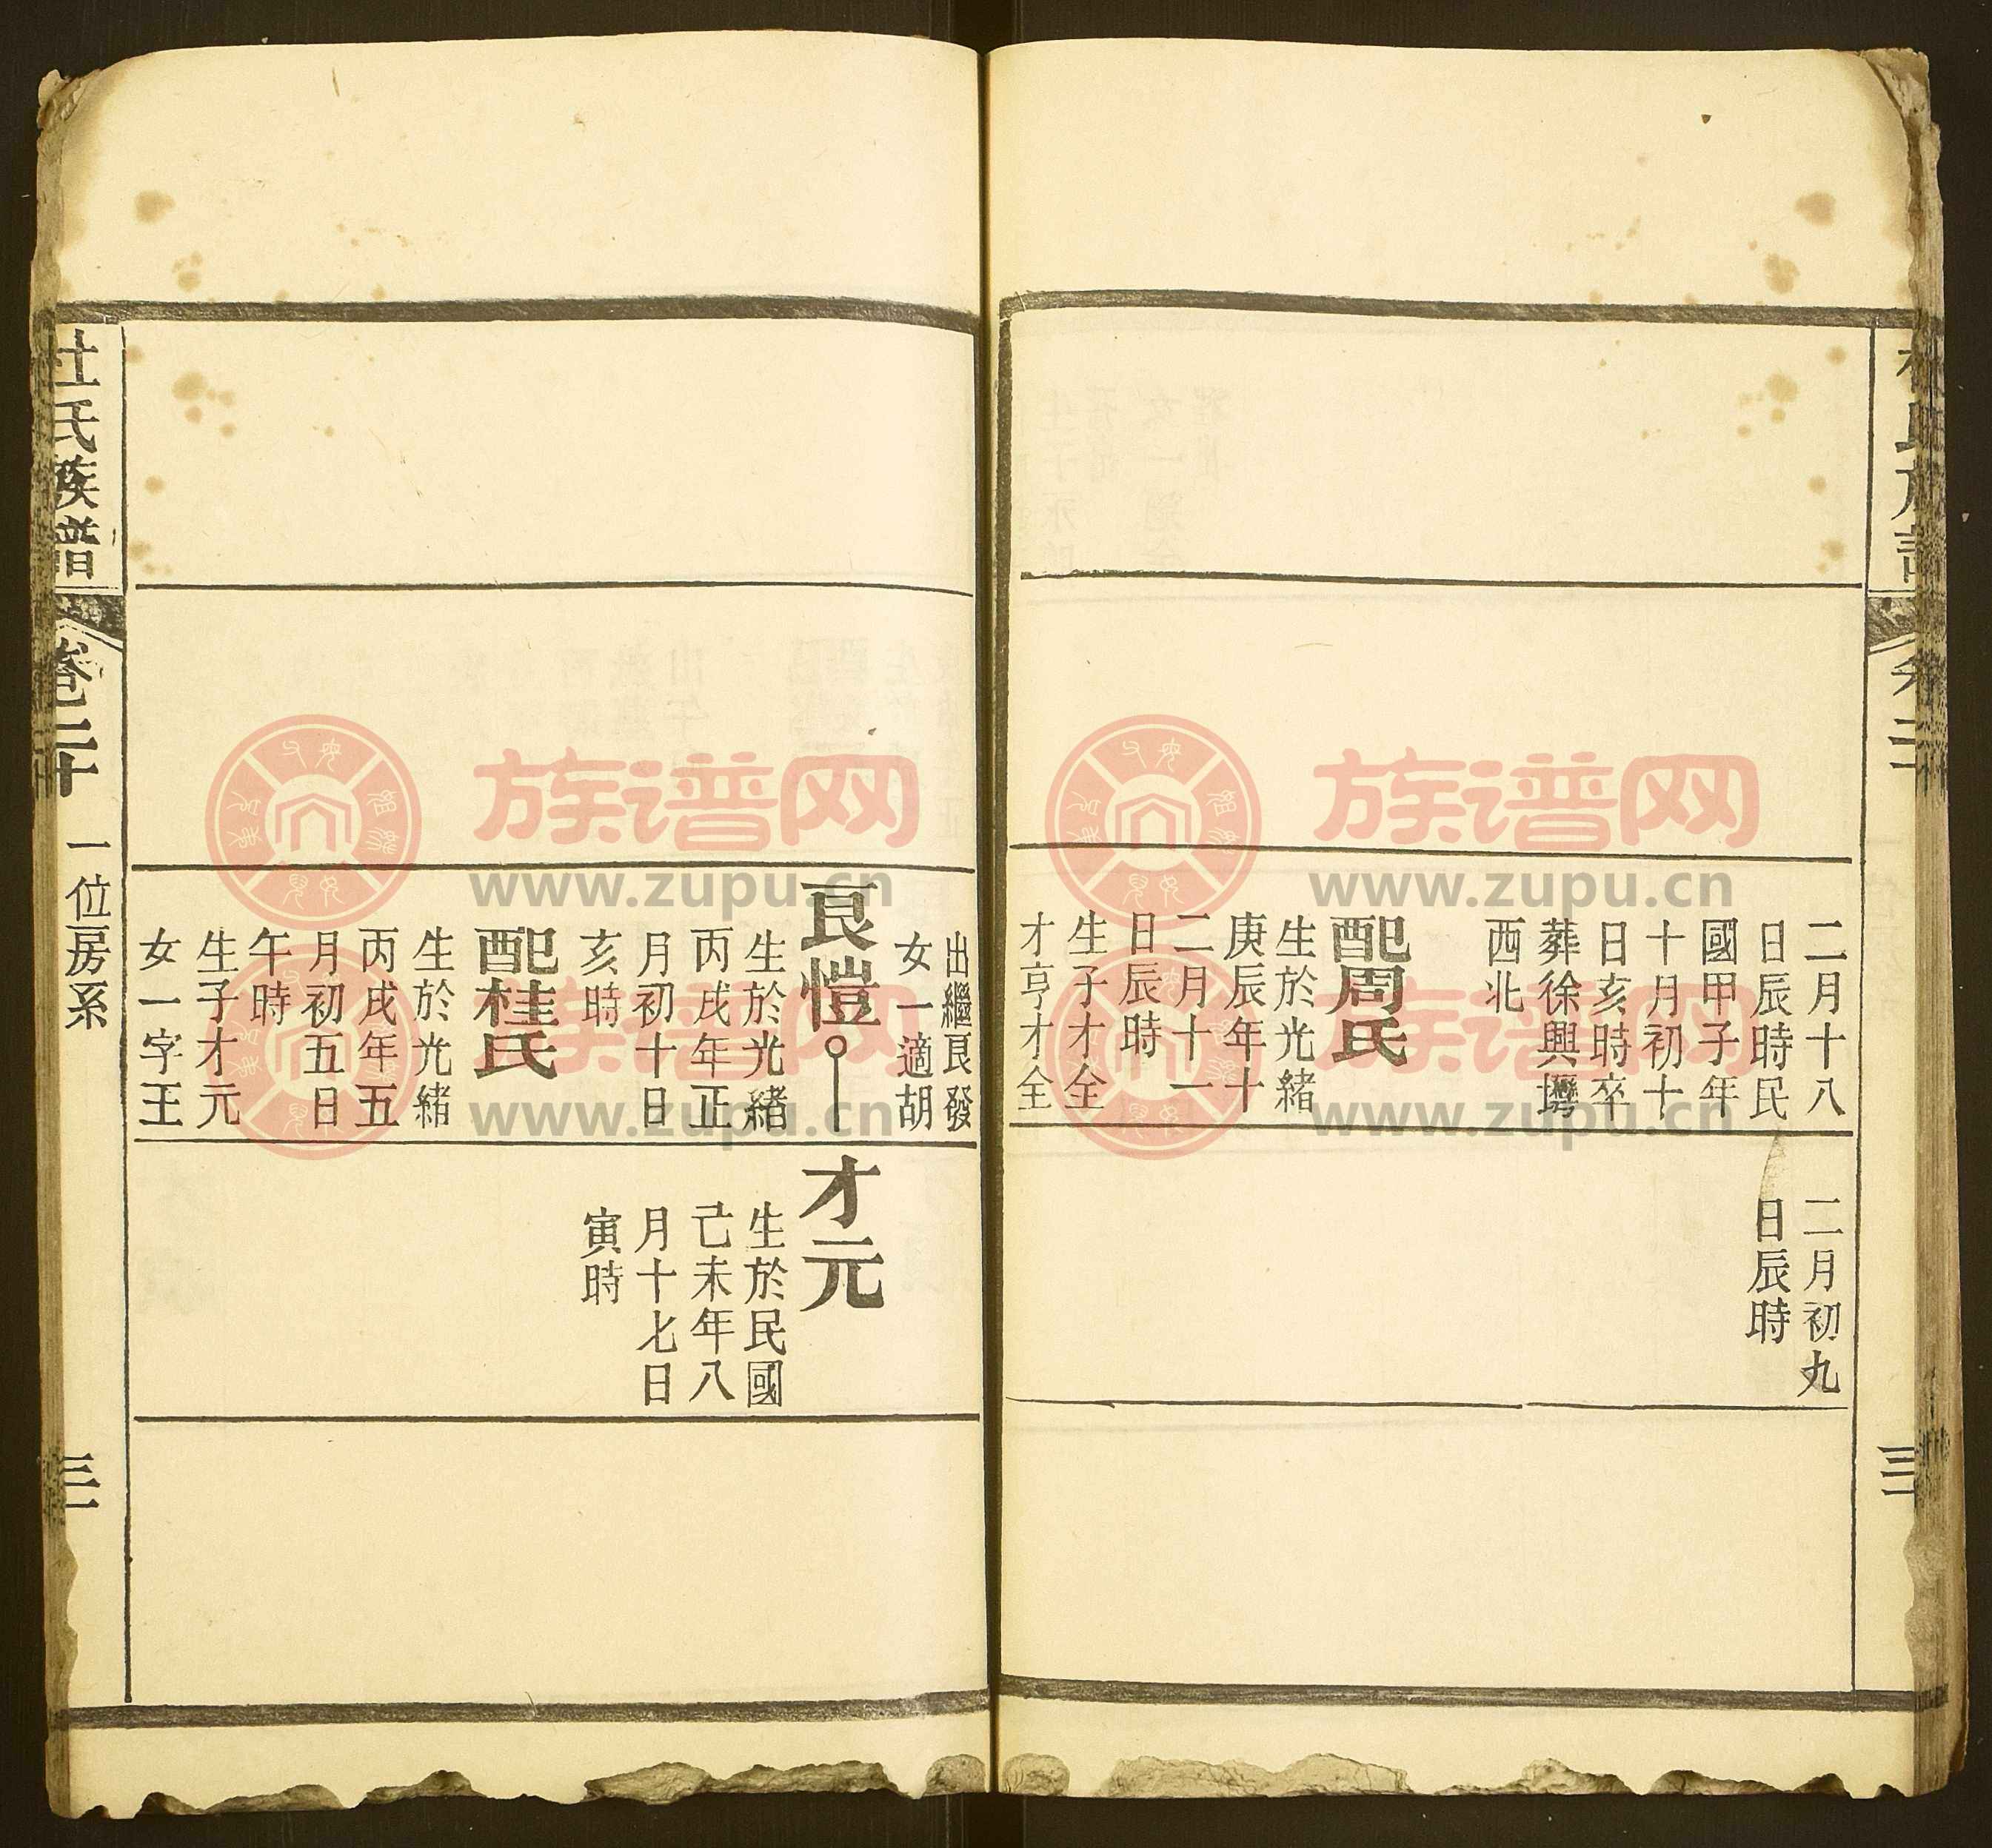 二月十八
日辰時民
國甲子年
十月初十
日亥時卒
葬徐興塆
西北
配周氏
生於光緒
庚辰年十
二月十一
日辰時
生子才全
才亨才全
二月初九
日辰時
出繼艮發
女一適胡
艮愷
生於光緒
丙戌年正
月初十日
亥時
配桂氏
生於光緒
丙戌年五
月初五日
午時
生子才元
女一字王
才元
生於民國
己未年八
月十七日
寅時
杜氏族譜
卷二十
一位房系
三
族谱网
www.zupu.cn
族谱网
www.zupu.cn
族谱网
www.zupu.cn
族谱网
www.zupu.cn